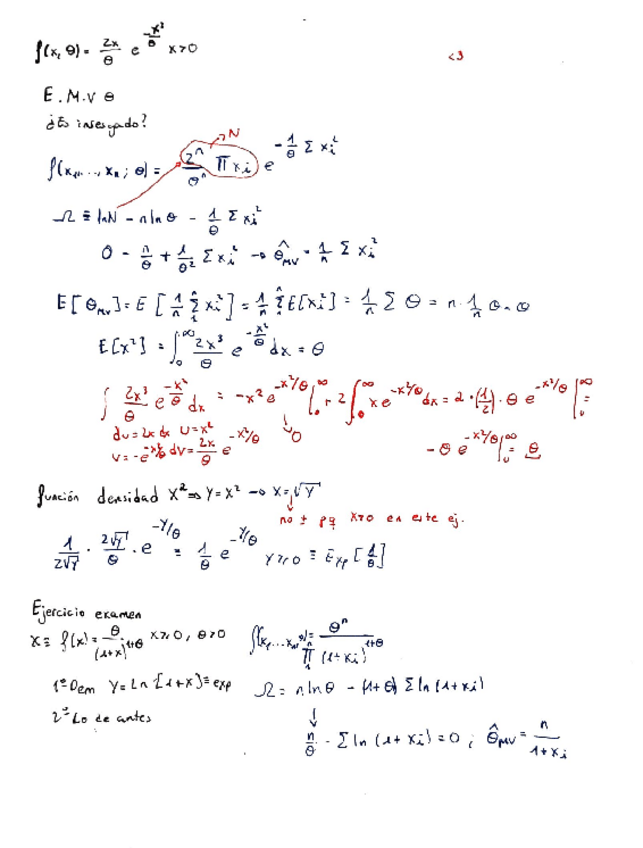 f(x, θ) = 2x/θ e^(-x²/θ) x>0
<3
E.M.V θ
¿Es insesgado?
f(x₁,..., xₙ; θ) = 2ⁿ/θⁿ ∏ xᵢ e^(-1/θ Σ xᵢ²)
N
Ω ≡ lnN - n ln θ - 1/θ Σ xᵢ²
0 - n/θ + 1/θ² Σ xᵢ² → θ̂_MV = 1/n Σ xᵢ²
E[θ_MV] = E[1/n Σ xᵢ²] = 1/n Σ E[xᵢ²] = 1/n Σ θ = n · 1/n θ = θ
E[x²] = ∫₀^∞ 2x³/θ e^(-x²/θ) dx = θ
∫ 2x³/θ e^(-x²/θ) dx = -x² e^(-x²/θ) |₀^∞ + 2 ∫₀^∞ x e^(-x²/θ) dx = 2 · (1/2) · θ e^(-x²/θ) |₀^∞ =
du = 2x dx U = x²
↓ 0
V = -e^(-x²/θ) dV = 2x/θ e^(-x²/θ)
-θ e^(-x²/θ) |₀^∞ = θ
función densidad X² ⇒ Y = X² → X = √Y
no ± pq x>0 en este ej.
1/(2√Y) · 2√Y/θ · e^(-Y/θ) = 1/θ e^(-Y/θ) Y>0 ≡ Exp[1/θ]
Ejercicio examen
X ≡ f(x) = θ/(1+x)^(1+θ) x>0, θ>0
f(x₁...xₙ, θ) = θⁿ/∏ (1+xᵢ)^(1+θ)
1º Dem Y = Ln[1+x] ≡ exp
Ω = n ln θ - (1+θ) Σ ln(1+xᵢ)
2º Lo de antes
↓
n/θ - Σ ln(1+xᵢ) = 0 ; θ̂_MV = n/(1+xᵢ)